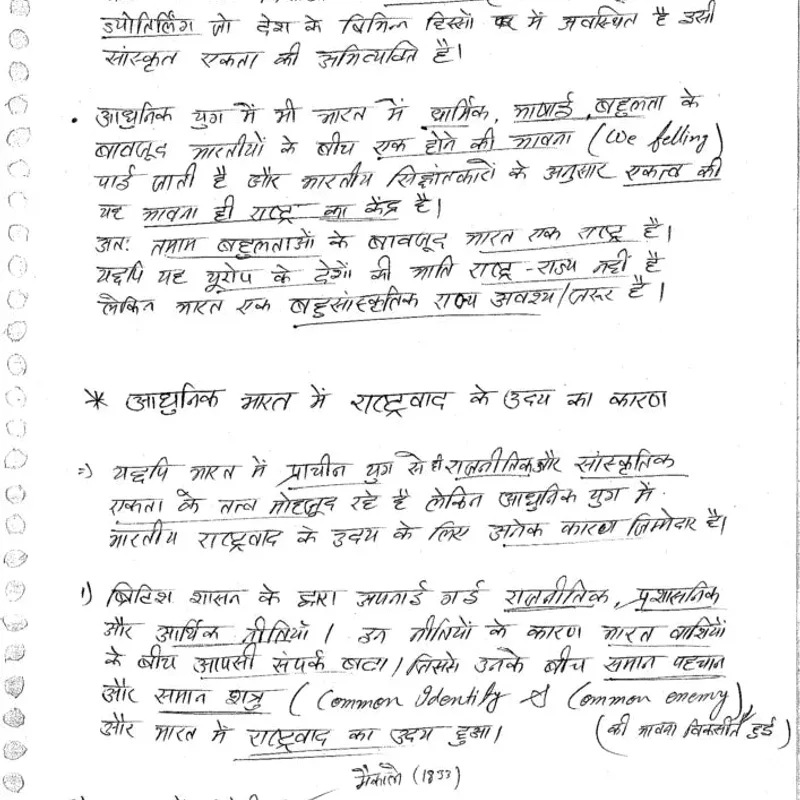 ज्योतिर्लिंग जो देश के विभिन्न हिस्सो में अवस्थित है इसी
सांस्कृत एकता की अभिव्यक्ति है।
• आधुनिक युग में भी भारत में धार्मिक, भाषाई, बहुलता के
बावजूद भारतीयों के बीच एक होने की भावना (We felling)
पाई जाती है और भारतीय सिद्धांतकारों के अनुसार एकत्व की
यह भावना ही राष्ट्र का केंद्र है।
अतः तमाम बहुलताओं के बावजूद भारत एक राष्ट्र है।
यद्दपि यह यूरोप के देशों की भाति राष्ट्र-राज्य नहीं है
लेकिन भारत एक बहुसांस्कृतिक राज्य अवश्य/जरूर है।
* आधुनिक भारत में राष्ट्रवाद के उदय का कारण
⇒) यद्दपि भारत में प्राचीन युग से ही राजनीतिक और सांस्कृतिक
एकता के तत्व मौजूद रहे है लेकिन आधुनिक युग में
भारतीय राष्ट्रवाद के उदय के लिए अनेक कारण जिम्मेदार है।
1) ब्रिटिश शासन के द्वारा अपनाई गई राजनीतिक, प्रशासनिक
और आर्थिक नीतियाँ। इन नीतियों के कारण भारत वाशियों
के बीच आपसी संपर्क बढा। जिससे उनके बीच समान पहचान
और समान शत्रु (Common Identify & Common enemy)
और भारत में राष्ट्रवाद का उदय हुआ। (की भावना विकसीत हुई)
मैकाले